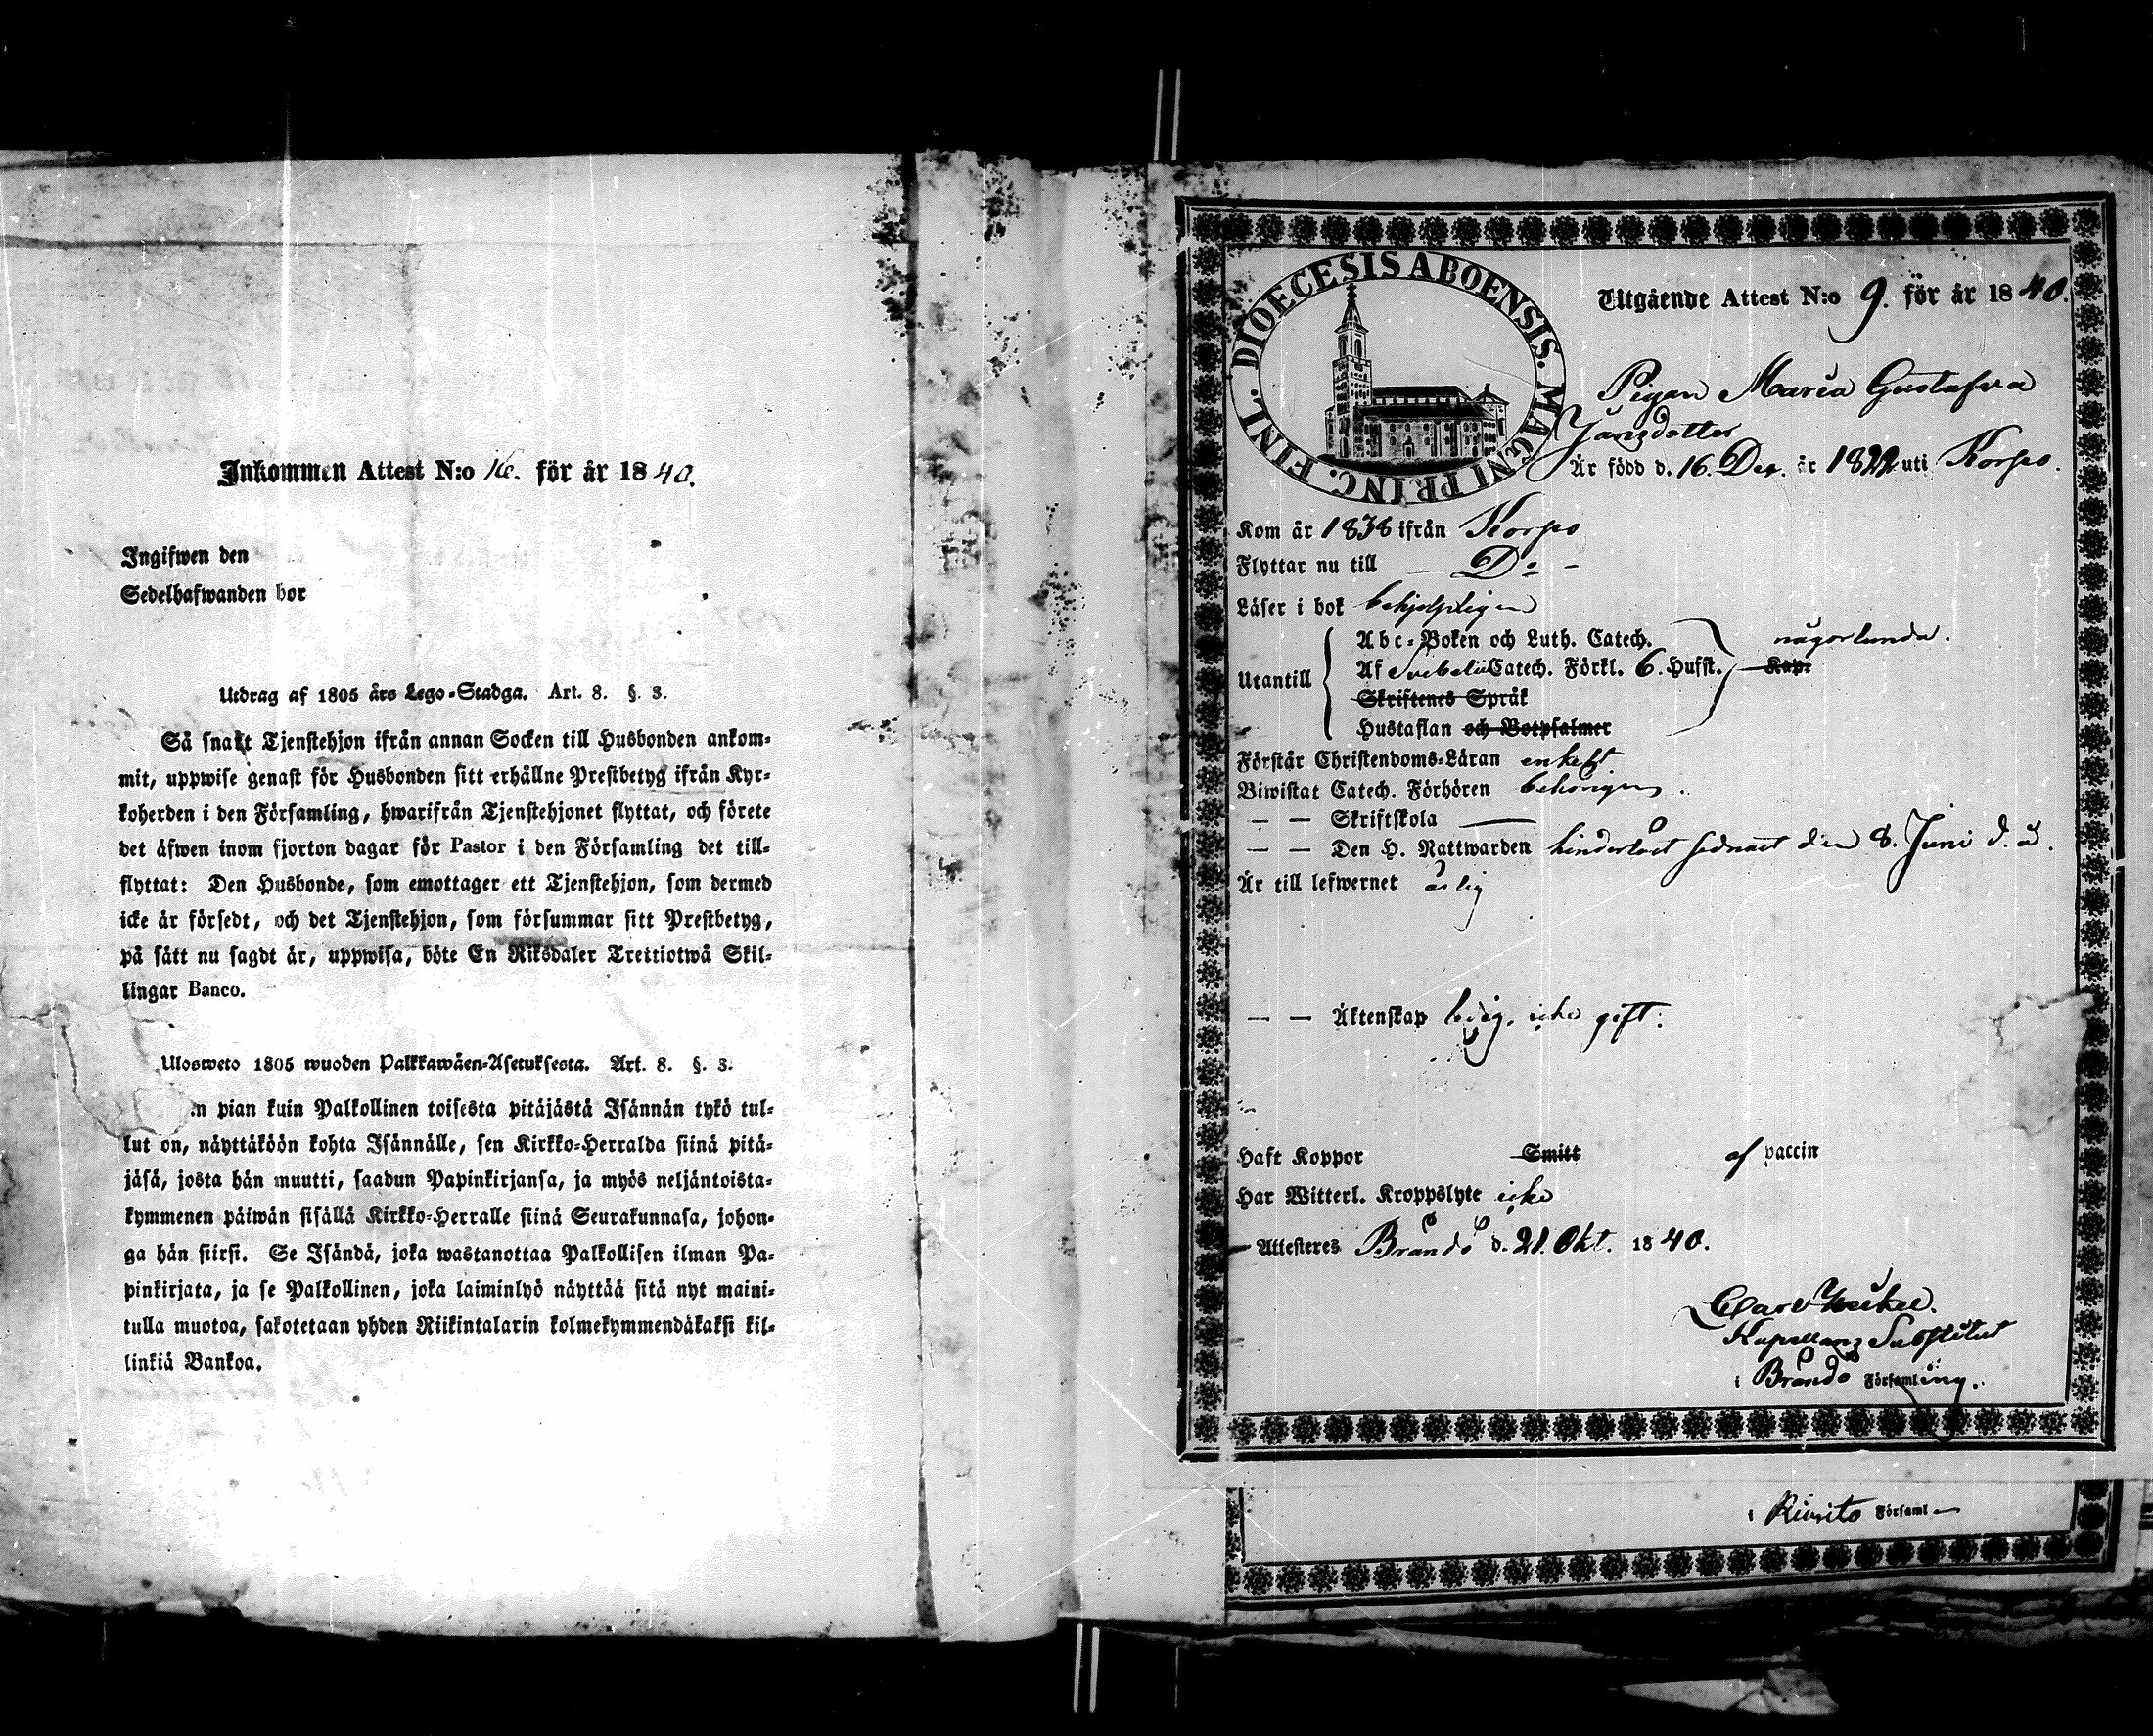 Inkommen Attest N:o 16. för år 1840.
Ingifwen den
Sedelhafwanden bor
Utdrag af 1805 års Lego-Stadga. Art. 8. §. 3.
Så snart Tjenstehjon ifrån annan Socken till Husbonden ankom-
mit, uppwise genast för Husbonden sitt erhållne Prestbetyg ifrån Kyr-
koherden i den Församling, hwarifrån Tjenstehjonet flyttat, och förete
det äfwen inom fjorton dagar för Pastor i den Församling det till-
flyttat: Den Husbonde, som emottager ett Tjenstehjon, som dermed
icke är försedt, och det Tjenstehjon, som försummar sitt Prestbetyg,
på sätt nu sagdt är, uppwisa, böte En Riksdaler Trettiotwå Skil-
lingar Banco.
Ulosweto 1805 wuoden Palkkawäen-Asetuksesta. Art. 8. §. 3.
n pian kuin Palkollinen toisesta pitäjästä Isännän tykö tul-
lut on, näyttäköön kohta Isännälle, sen Kirkko-Herralda siinä pitä-
jäsä, josta hän muutti, saadun Papinkirjansa, ja myös neljäntoista-
kymmenen päiwän sisällä Kirkko-Herralle siinä Seurakunnasa, johon-
ga hän siirsi. Se Isändä, joka wastanottaa Palkollisen ilman Pa-
pinkirjata, ja se Palkollinen, joka laiminlyö näyttää sitä nyt maini-
tulla muotoa, sakotetaan yhden Riikintalarin kolmekymmendäkaksi kil-
linkiä Bankoa.
DIOECESIS ABOENSIS. MAGNI PRINC. FINL.
Utgående Attest N:o 9. för år 1840.
Pigan Maria Gustafva
Jansdotter
Är född d. 16. Dec. år 1822 uti Korpo.
Kom år 1838 ifrån Korpo
Flyttar nu till — Do -
Läser i bok behjelpligen
Utantill
Abc-Boken och Luth. Catech.
Af Svebelii Catech. Förkl. 6. Hufst.
Skriftenes Språk
Hustaflan och Botpsalmer
någorlunda.
Kap.
Förstår Christendoms-Läran enkelt
Biwistat Catech. Förhören behörigen.
— — Skriftskola —
— — Den H. Nattwarden hinderlöst sednast den 8. Juni d. å.
Är till lefwernet ärlig
— — Äktenskap ledig, icke gift.
Haft Koppor Smitt af vaccin
Har Witterl. Kroppslyte icke
Attesteres Brändö d. 21. Okt. 1840.
Kapellans Substitut
i Brändö Församling.
i Rimito Församl—